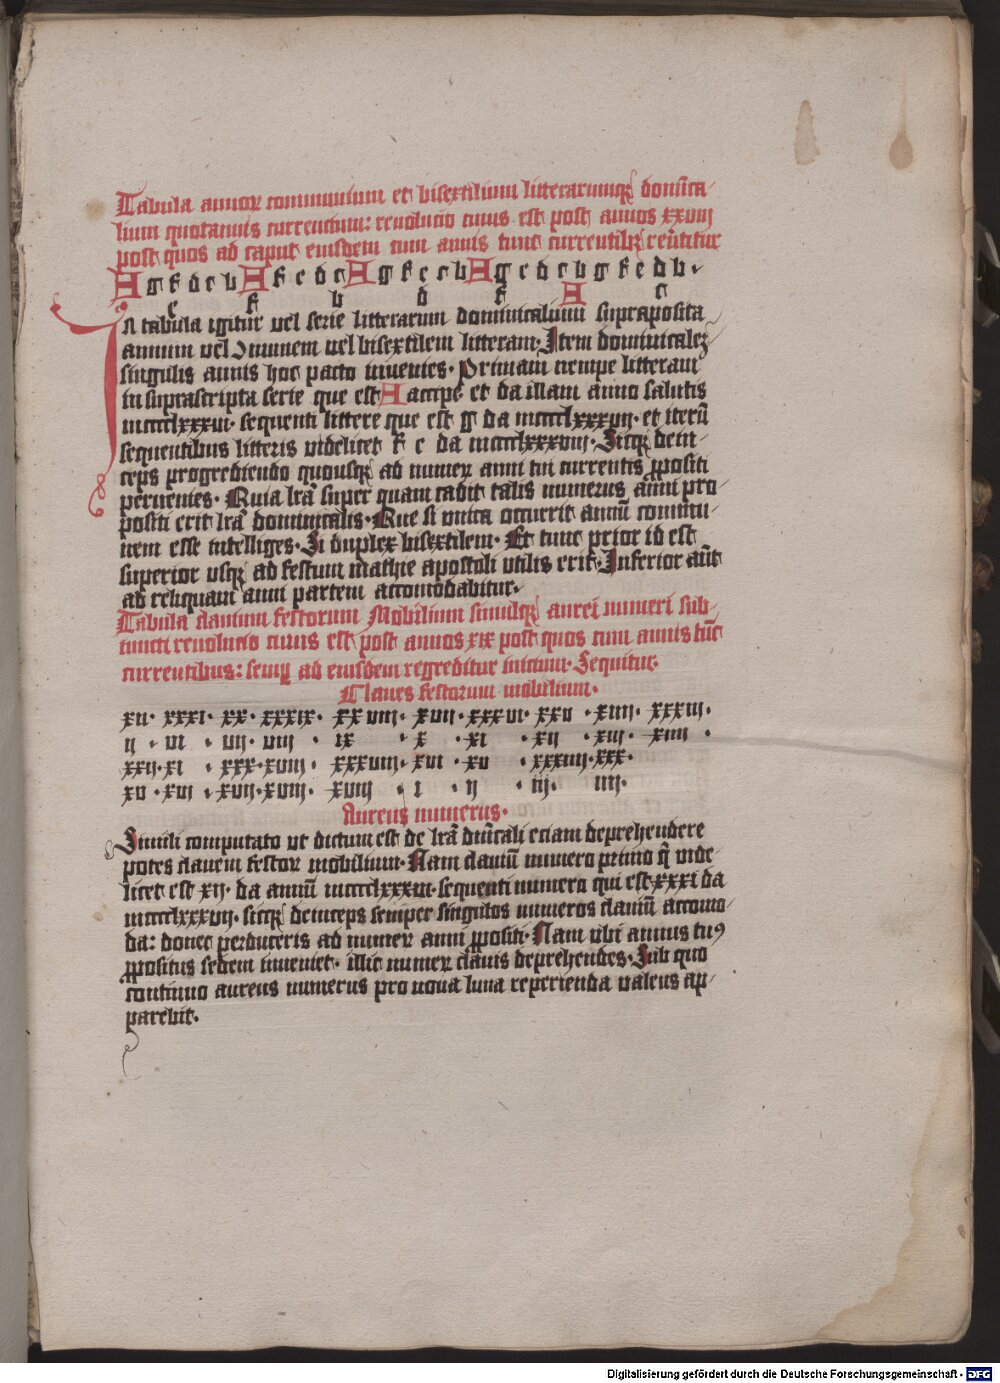 Tabula annoꝝ communium et bisextilium litterarumqꝫ domīca-
lium quotannis currentium: reuolucio cuius est post annos xxviij
post quos ad caput eiusdem cum annis tunc currentibꝫ reūtitur
A g f d c b A f e d c A g f e c b A g e d c b g f e d b.
e f b d f A c
In tabula igitur vel serie litterarum dominicalium supraposita
annum vel ꝯmunem vel bisextilem litteram. Item dominicalez
singulis annis hoc pacto inuenies. Primam nempe litteram
in suprascripta serie que est A accipe et da illam anno salutis
mcccclxxxvi. sequenti littere que est g da mcccclxxxvij. et iterū
sequentibus litteris videlicet f e da mcccclxxxviij. Sicqꝫ dein-
ceps progrediendo quousqꝫ ad numeꝝ anni tui currentis ꝓpositi
peruenies. Quia lrā super quam cadit talis numerus anni pro-
positi erit lrā dominicalis. Que si vnica occurrit annū commu-
nem esse intelliges. Si duplex bisextilem. Et tunc prior id est
superior vsqꝫ ad festum mathie apostoli vtilis erit. Inferior aūt
ad reliquam anni partem accomodabitur.
Tabula clauium festorum Mobilium simulqꝫ aurei numeri sub-
iuncti reuolucio cuius est post annos xix post quos cum annis tūc
currentibus: semꝑ ad eiusdem regreditur inicium. Sequitur.
Claues festorum mobilium.
xij. xxxi. xx. xxxix. xxviij. xvij. xxxvi. xxv. xiiij. xxxiij.
ij. vi. vij. viij. ix. x. xi. xij. xiij. xiiij.
xxij. xi. xxx. xviij. xxxviij. xvi. xv. xxxiiij. xxx.
xv. xvi. xvij. xviij. xviiij. i. ij. iij. iiij.
Aureus numerus.
Simili computato vt dictum est de lrā dnīcali eciam deprehendere
potes clauem festoꝝ mobilium. Nam clauiū numero primo q̄ vide-
licet est xij. da annū mcccclxxxvi. sequenti numero qui est xxxi da
mcccclxxxvij. sicqꝫ deinceps semper singulos numeros clauiū accomo-
da: donec perduceris ad numeꝝ anni ꝓpositi. Nam vbi annus tuꝰ
ꝓpositus sedem inueniet. illic numeꝝ clauis deprehendes. Sub quo
continuo aureus numerus pro noua luna reperienda valens ap-
parebit.
Digitalisierung gefördert durch die Deutsche Forschungsgemeinschaft - DFG